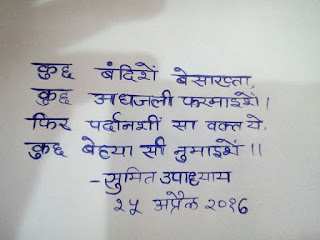 कुछ बंदिशें बेसाख्ता,
कुछ आधजली फरमाइशें।
फिर पर्दानशीं सा वक्त ये,
कुछ बेहया सी नुमाइशें।।
-सुमित उपाध्याय
२५ अप्रैल २०१६